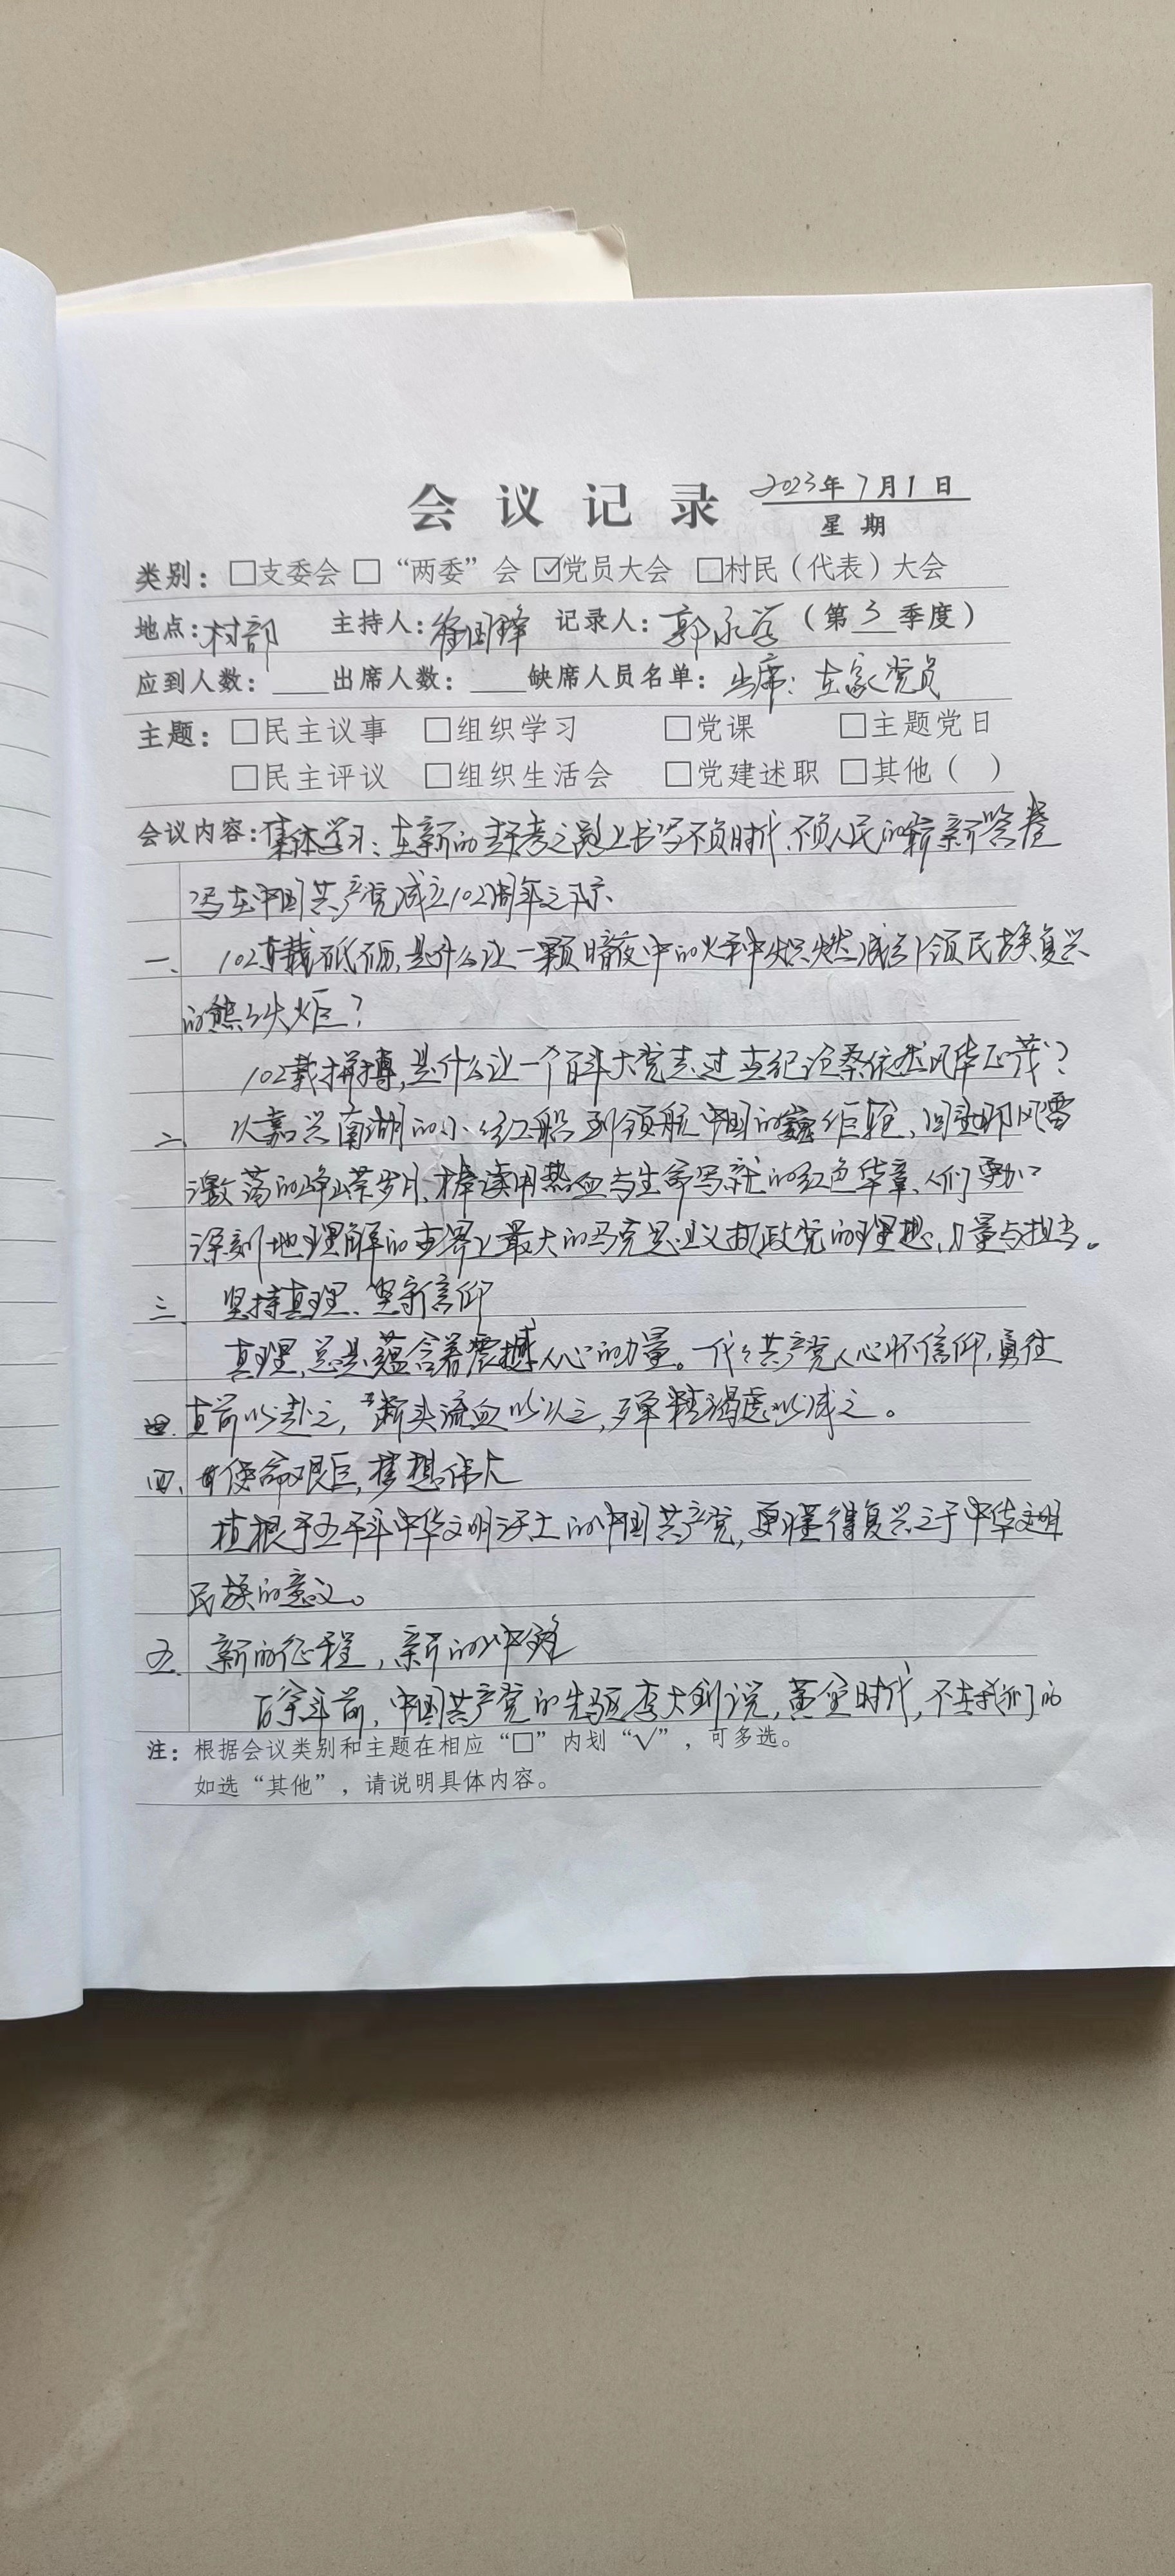 会议记录 2023年7月1日
星期
类别：□支委会 □“两委”会 ☑党员大会 □村民（代表）大会
地点：村部 主持人：徐国锋 记录人：郭永学（第3季度）
应到人数：____出席人数：____缺席人员名单：出席：在家党员
主题：□民主议事 □组织学习 □党课 □主题党日
□民主评议 □组织生活会 □党建述职 □其他（ ）
会议内容：集体学习：在新的赶考之路上书写不负时代、不负人民的崭新答卷
写在中国共产党成立102周年之际
一、102载砥砺，是什么让一颗暗夜中的火种炽燃成引领民族复兴
的熊熊火炬？
102载拼搏，是什么让一个百年大党走过世纪沧桑依然风华正茂？
二、从嘉兴南湖的小小红船到领航中国的巍巍巨轮、回望那风雷
激荡的峥嵘岁月、捧读用热血与生命写就的红色华章、人们更加
深刻地理解的世界上最大的马克思主义执政党的理想、力量与担当。
三、坚持真理、坚守信仰
真理，总是蕴含着震撼人心的力量。一代代共产党人心怀信仰，勇往
四.直前以赴之，断头流血以从之，殚精竭虑以成之。
四、使命艰巨，梦想伟大
植根于五千年中华文明沃土的中国共产党，更懂得复兴之于中华文明
民族的意义。
五、新的征程，新的冲锋
百余年前，中国共产党的先驱李大钊说，黄金时代，不在我们的
注：根据会议类别和主题在相应“□”内划“√”，可多选。
如选“其他”，请说明具体内容。